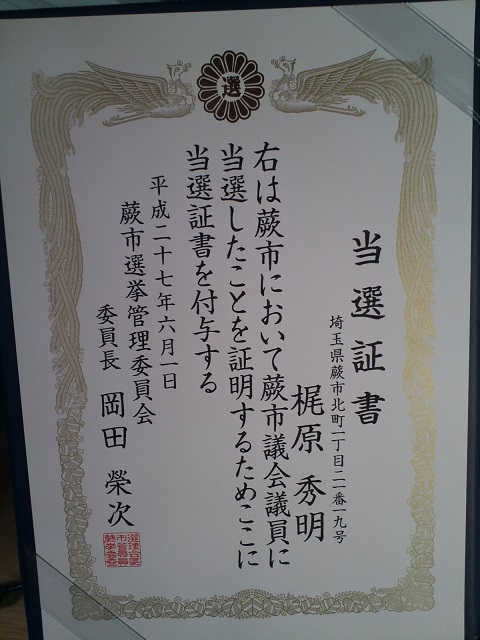 選
当選証書
埼玉県蕨市北町二丁目二一番一九号
梶原秀明
右は蕨市において蕨市議会議員に
当選したことを証明するためここに
当選証書を付与する
平成二十七年六月一日
蕨市選挙管理委員会
委員長 岡田榮次